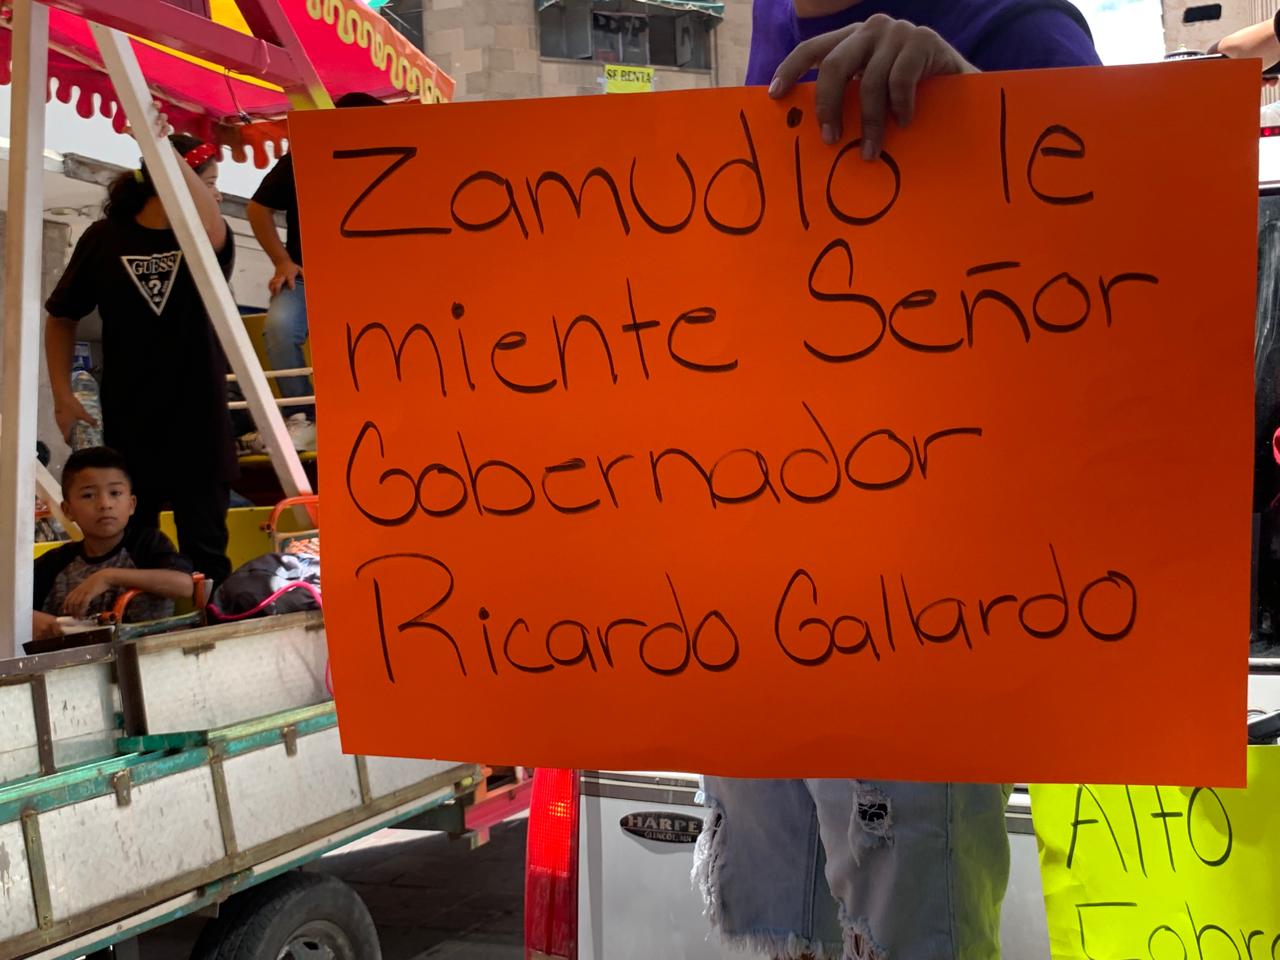 SE RENTA
GUESS
?
Zamudio le
miente Señor
Gobernador
Ricardo Gallardo
HARPE
Alto